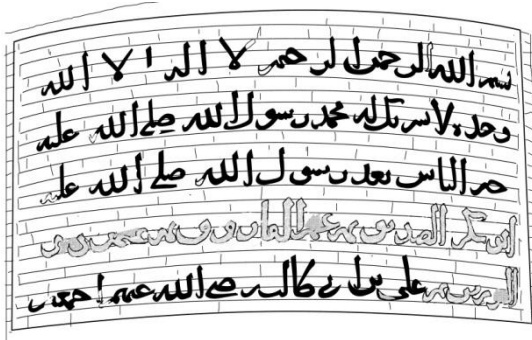 بسم الله الرحمن الرحيم لا اله الا الله
وحده لا شريك له محمد رسول الله صلى الله عليه
خير الناس بعد رسول الله صلى الله عليه
ابو بكر الصديق ثم عمر الفاروق ثم عثمن
ثم علي بن ابي طالب رضي الله عنهم اجمعين